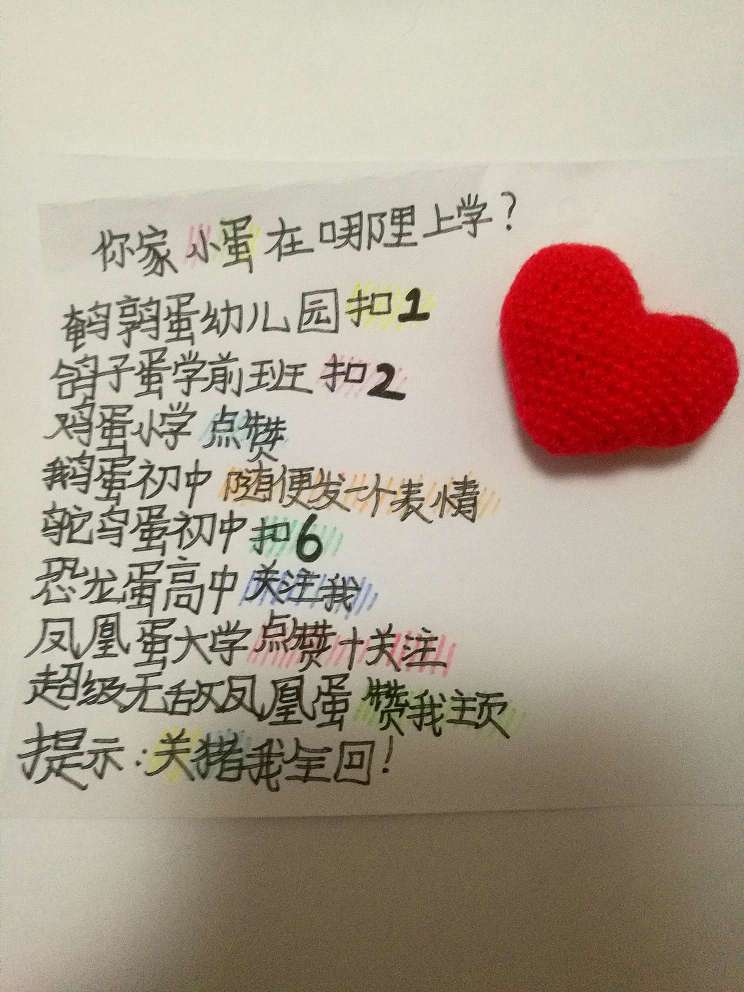 你家小蛋在哪里上学？
鹌鹑蛋幼儿园扣1
鸽子蛋学前班扣2
鸡蛋小学点赞
鹅蛋初中随便发一个表情
鸵鸟蛋初中扣6
恐龙蛋高中关注我
凤凰蛋大学点赞+关注
超级无敌凤凰蛋赞我主页
提示：关猪我全回！